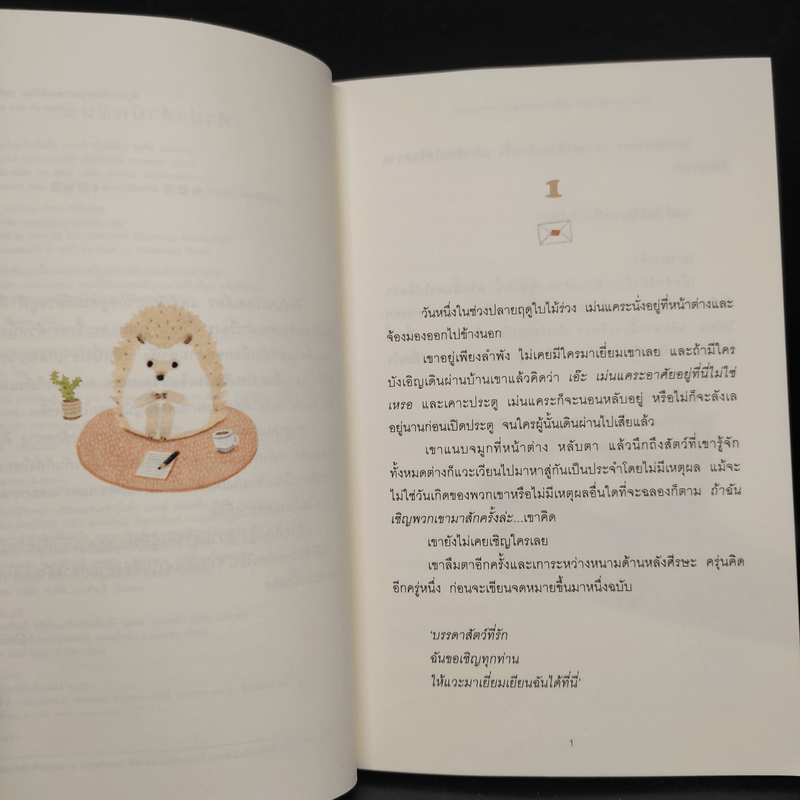 1
วันหนึ่งในช่วงปลายฤดูใบไม้ร่วง เม่นแคระนั่งอยู่ที่หน้าต่างและ
จ้องมองออกไปข้างนอก
เขาอยู่เพียงลำพัง ไม่เคยมีใครมาเยี่ยมเขาเลย และถ้ามีใคร
บังเอิญเดินผ่านบ้านเขาแล้วคิดว่า เอ๊ะ เม่นแคระอาศัยอยู่ที่นี่ไม่ใช่
เหรอ และเคาะประตู เม่นแคระก็จะนอนหลับอยู่ หรือไม่ก็จะลังเล
อยู่นานก่อนเปิดประตู จนใครผู้นั้นเดินผ่านไปเสียแล้ว
เขาแนบจมูกที่หน้าต่าง หลับตา แล้วนึกถึงสัตว์ที่เขารู้จัก
ทั้งหมดต่างก็แวะเวียนไปมาหาสู่กันเป็นประจำโดยไม่มีเหตุผล แม้จะ
ไม่ใช่วันเกิดของพวกเขาหรือไม่มีเหตุผลอื่นใดที่จะฉลองก็ตาม ถ้าฉัน
เชิญพวกเขามาสักครั้งล่ะ...เขาคิด
เขายังไม่เคยเชิญใครเลย
เขาลืมตาอีกครั้งและเการะหว่างหนามด้านหลังศีรษะ ครุ่นคิด
อีกครู่หนึ่ง ก่อนจะเขียนจดหมายขึ้นมาหนึ่งฉบับ
'บรรดาสัตว์ที่รัก
ฉันขอเชิญทุกท่าน
ให้แวะมาเยี่ยมเยียนฉันได้ที่นี่'
1